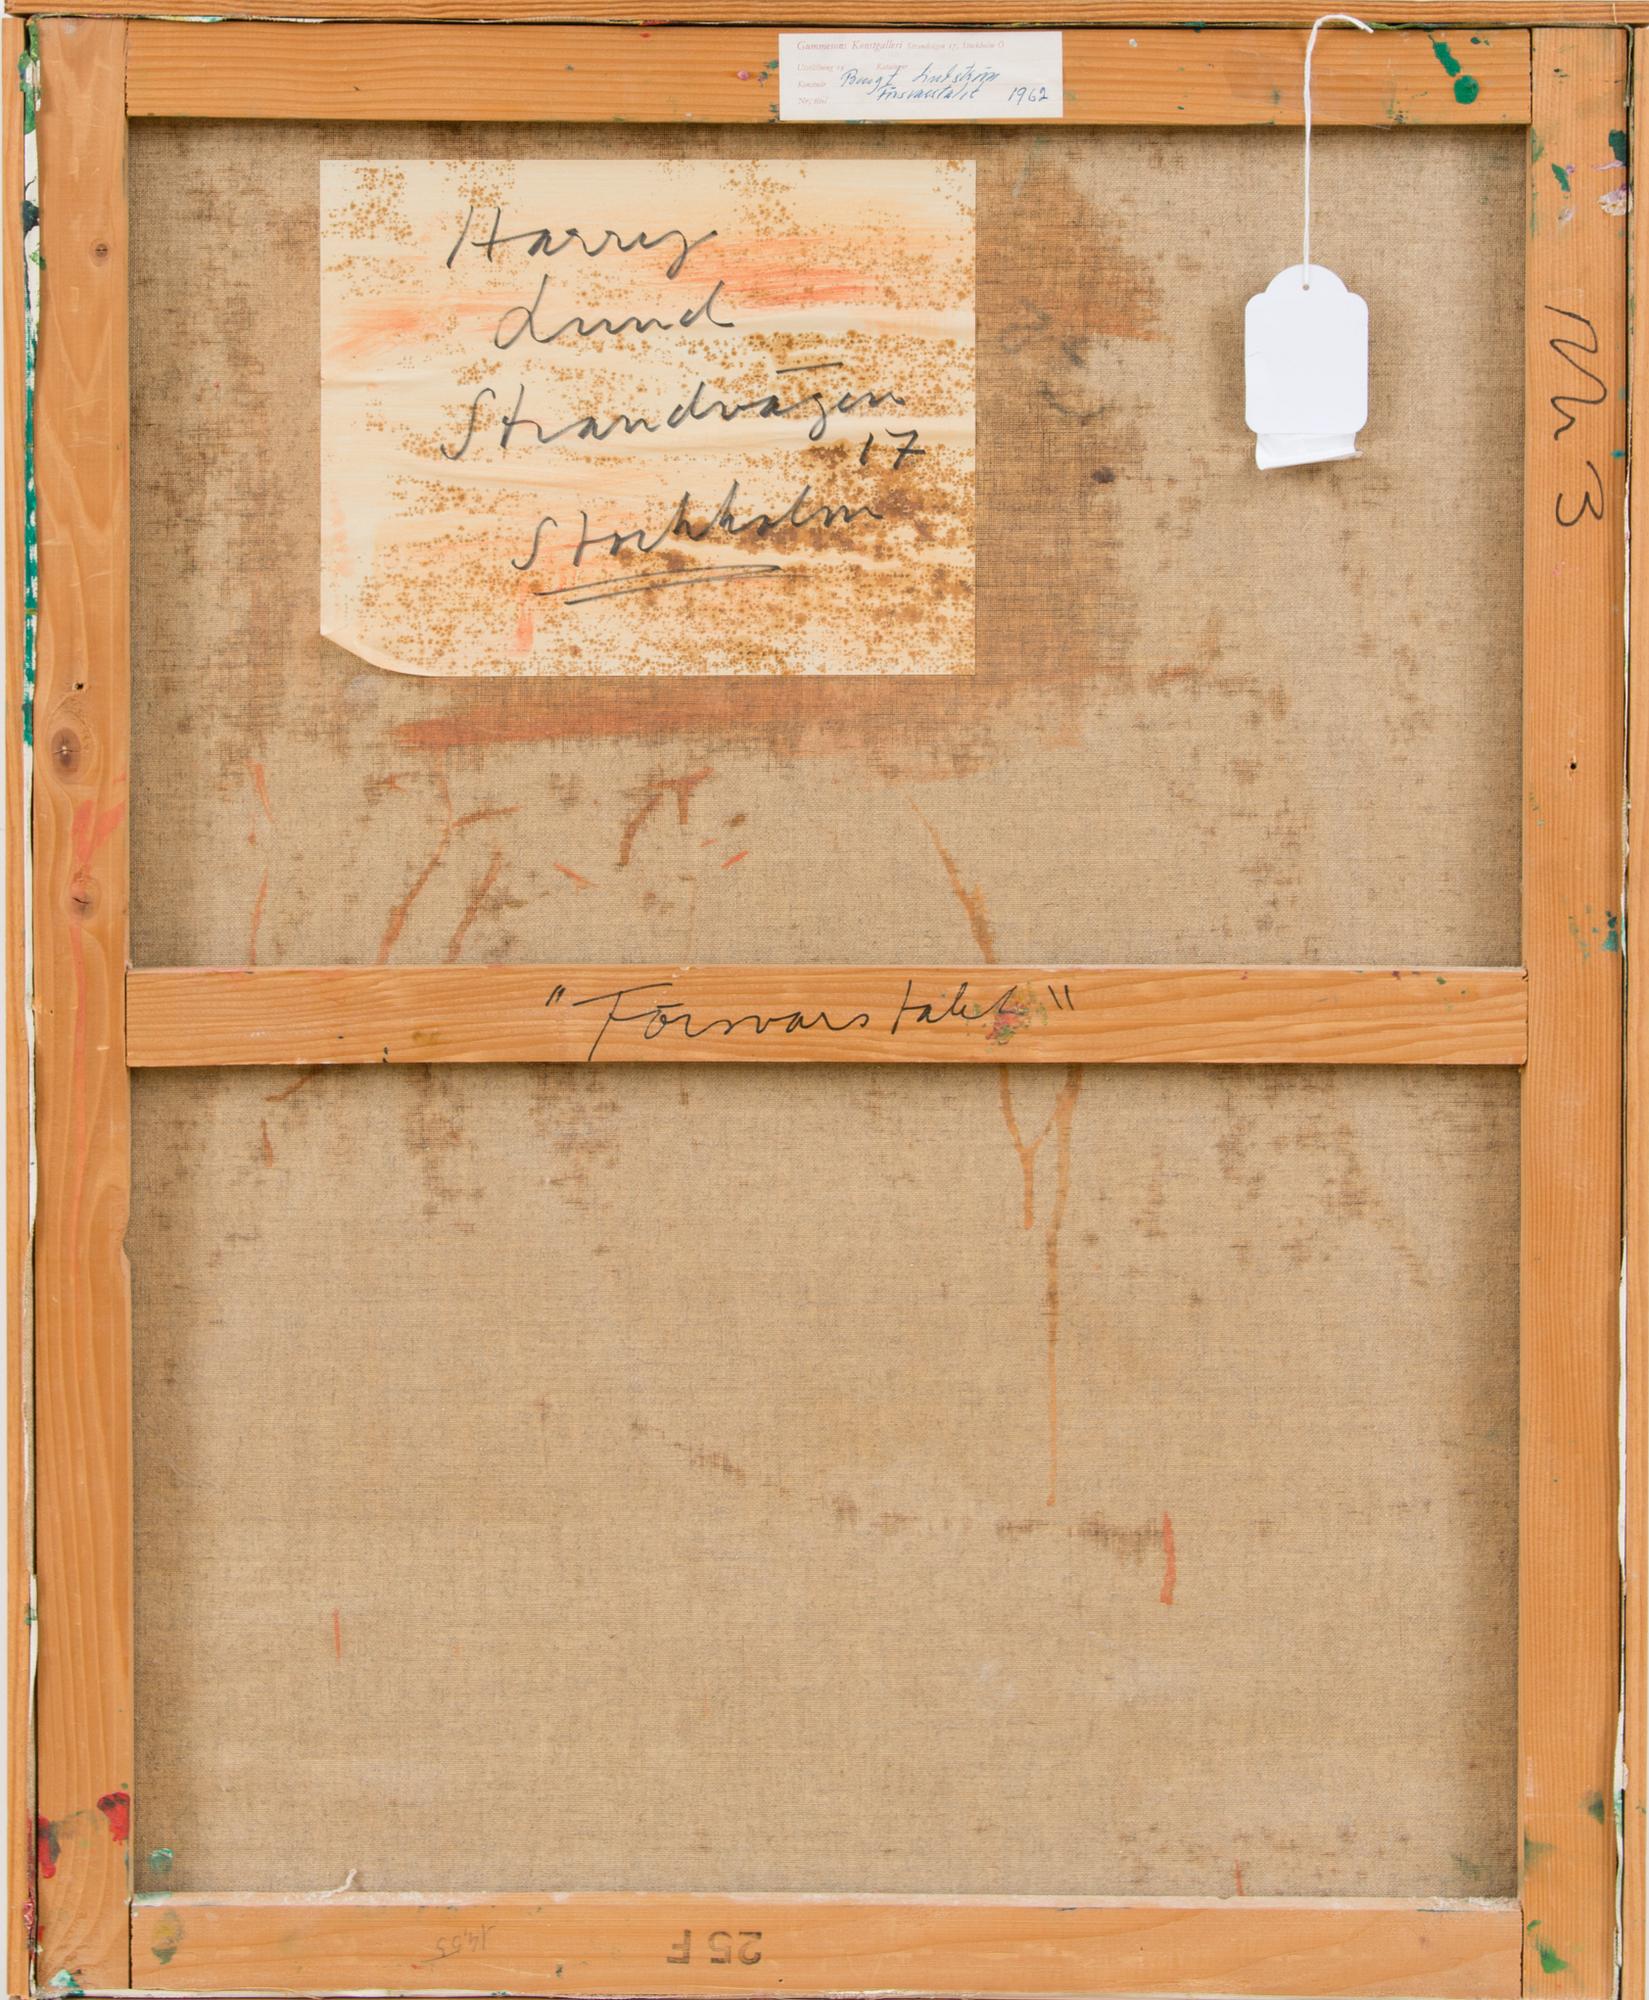 Gummesons Konstgalleri Strandvägen 17, Stockholm Ö
Utställning nr Katalognr
Konstnär Bengt Lindström
Nr, titel Försvarstalet 1962
Harry
Lund
Strandvägen
17
Stockholm
No 3
"Försvarstalet"
25 F